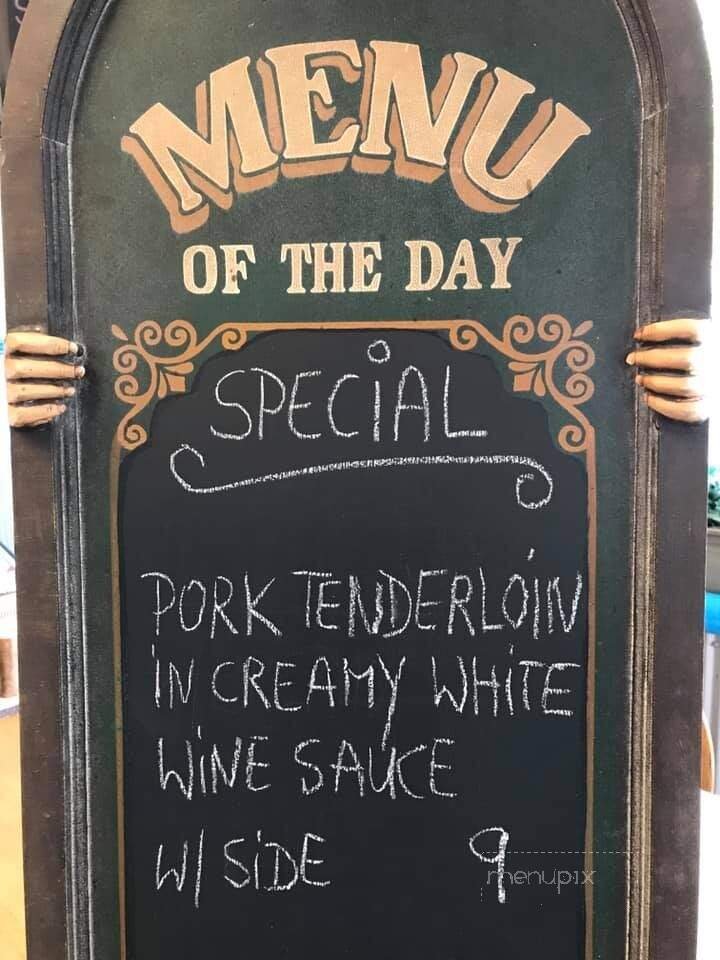 MENU
OF THE DAY
SPECiAL
PORK TENDERLOiN
iN CREAMY WHiTE
WiNE SAUCE
W/ SiDE 9
menupix